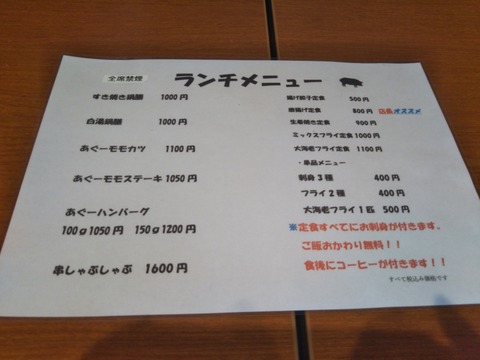 全席禁煙
ランチメニュー
すき焼き鍋膳 1000円
白湯鍋膳 1000円
あぐーモモカツ 1100円
あぐーモモステーキ 1050円
あぐーハンバーグ
100g1050円 150g1200円
串しゃぶしゃぶ 1600円
揚げ餃子定食 500円
唐揚げ定食 800円 店長オススメ
生姜焼き定食 900円
ミックスフライ定食 1000円
大海老フライ定食 1100円
・単品メニュー
刺身3種 400円
フライ2種 400円
大海老フライ1匹 500円
※定食すべてにお刺身が付きます。
ご飯おかわり無料!!
食後にコーヒーが付きます!!
すべて税込み価格です